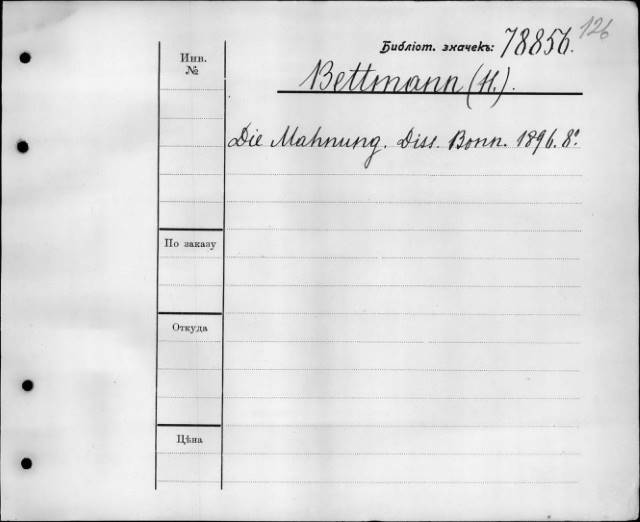 126
Библіот. значекъ: 78856.
Инв.
№
Bettmann (H.).
Die Mahnung. Diss. Bonn. 1896. 8°.
По заказу
Откуда
Цѣна